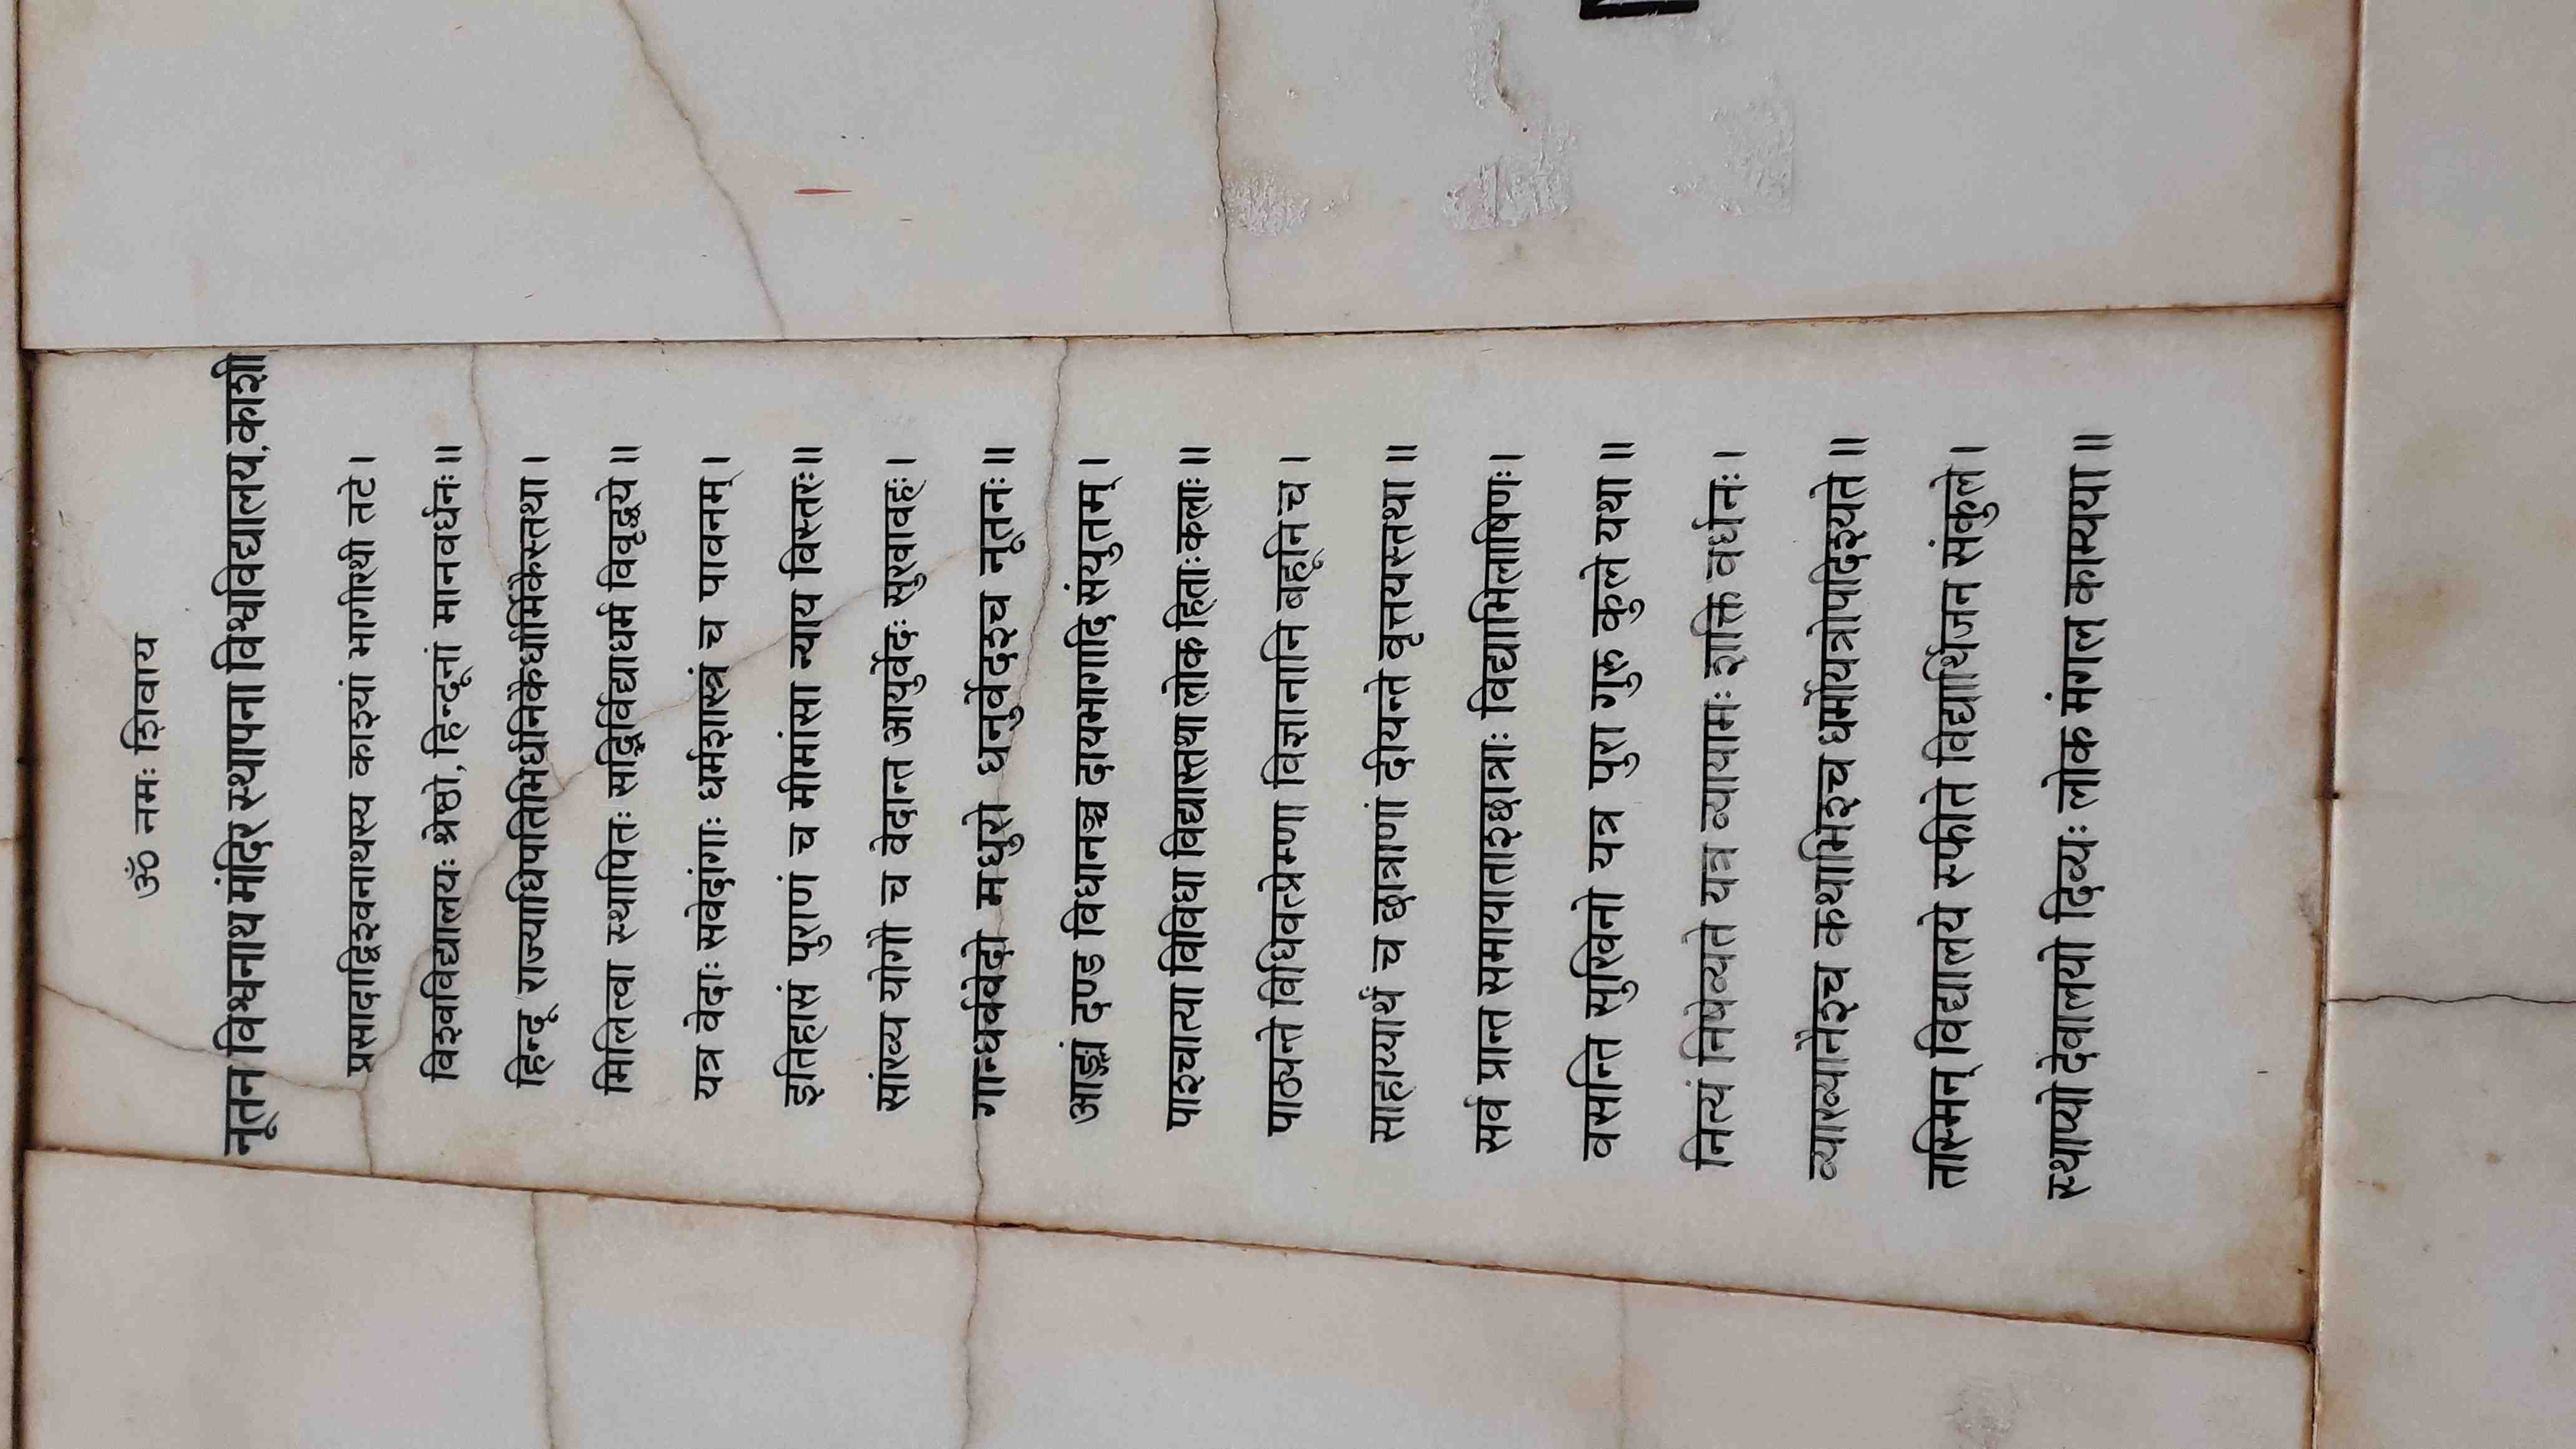 ॐ नमः शिवाय
नूतन विश्वनाथ मंदिर स्थापना विश्वविद्यालय, काशी
प्रसादाद्विश्वनाथस्य काश्यां भागीरथी तटे ।
विश्वविद्यालयः श्रेष्ठो, हिन्दूनां मानवर्धनः ॥
हिन्दू राज्याधिपतिभिर्धनिकैर्धार्मिकैस्तथा ।
मिलित्वा स्थापितः सद्भिर्विद्याधर्म विवृद्धये ॥
यत्र वेदाः सवेदांगाः धर्मशास्त्रं च पावनम् ।
इतिहासं पुराणं च मीमांसा न्याय विस्तरः ॥
सांख्य योगौ च वेदान्त आयुर्वेदः सुखावहः ।
गान्धर्ववेदो मधुरो धनुर्वेदश्च नूतनः ॥
आङ्ग्लं दण्ड विधानञ्च दायभागादि संयुतम् ।
पाश्चात्या विविधा विद्यास्तथा लोक हिताः कलाः ॥
पाठ्यन्ते विधिवत्प्रेम्णा विज्ञानानि बहूनि च ।
साहाय्यार्थं च छात्राणां दीयन्ते वृत्तयस्तथा ॥
सर्व प्रान्त समायाताश्छात्राः विद्याभिलाषिणः ।
वसन्ति सुखिनो यत्र पुरा गुरु कुले यथा ॥
नित्यं निषेव्यते यत्र व्यायामः शक्ति वर्धनः ।
व्याख्यानैश्च कथाभिश्च धर्मोयत्रोपदिश्यते ॥
तस्मिन् विद्यालये स्फीते विद्यार्थिजन संकुले ।
स्थाप्यो देवालयो दिव्यः लोक मंगल काम्यया ॥